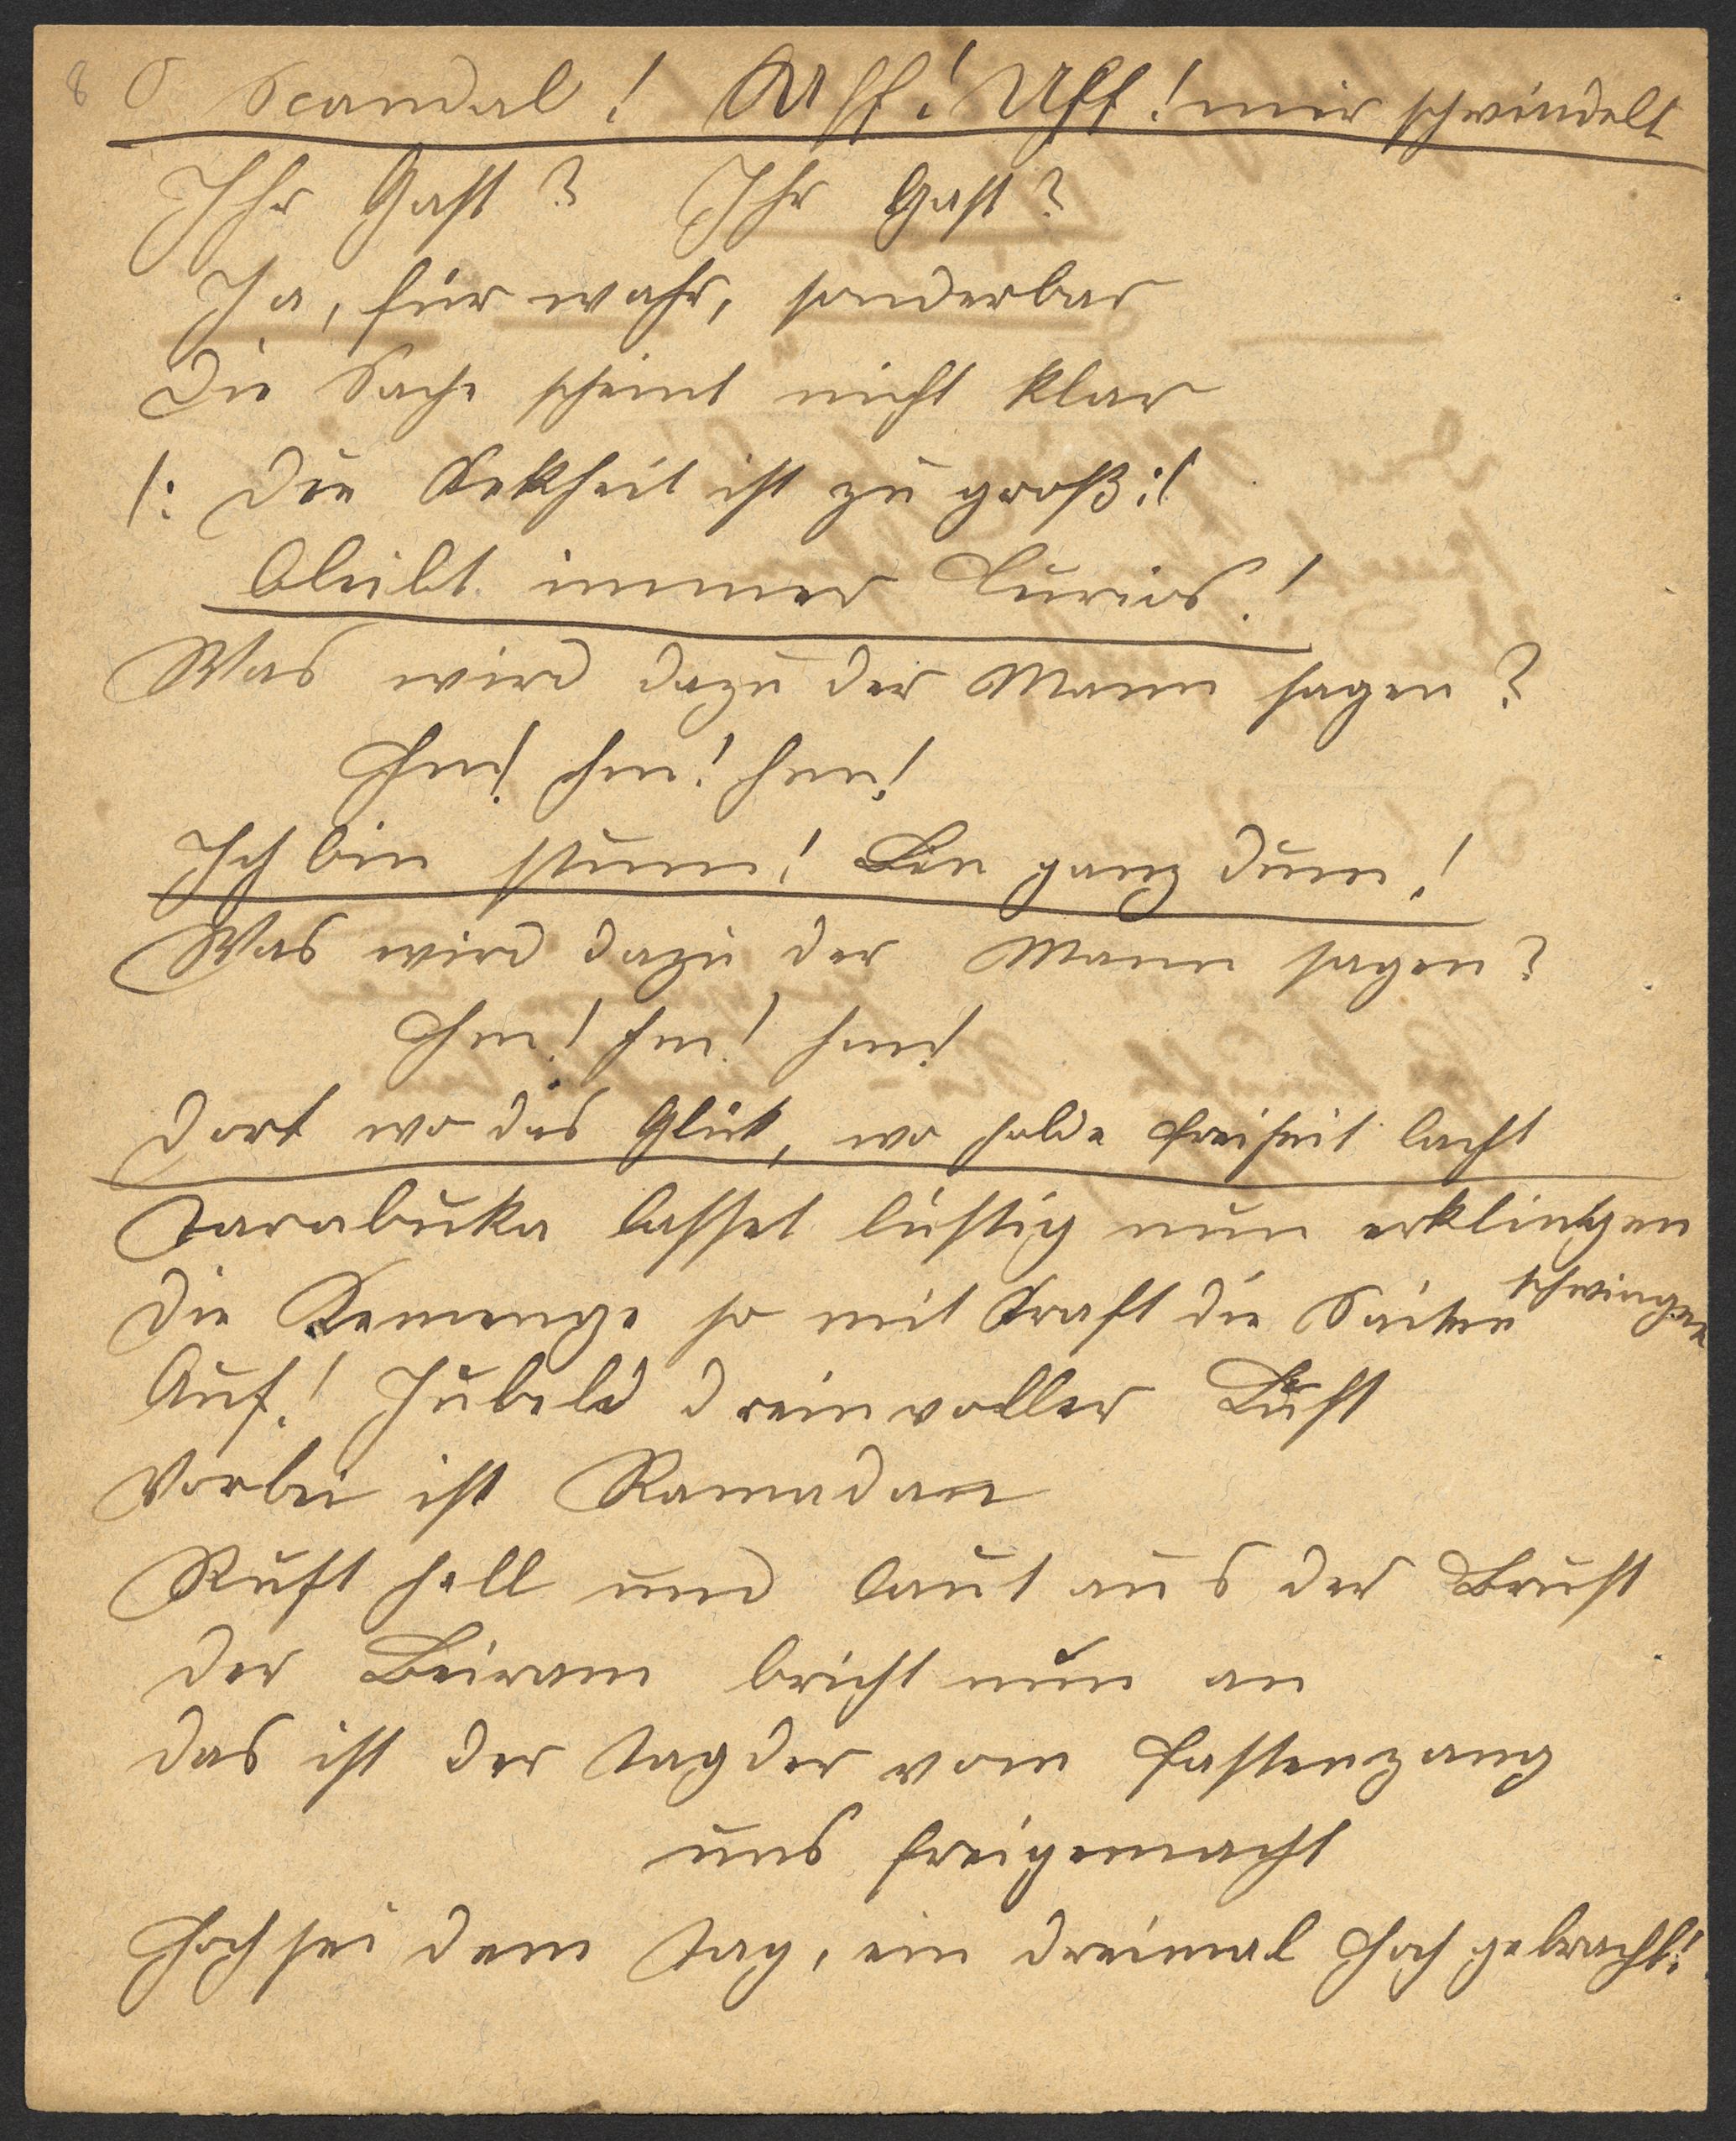 8 O Scandal! Uff! Uff! mir schwindelt
Ihr Gast? Ihr Gast?
Ja, für wahr, sonderbar
Die Sache scheint nicht klar
/: Die Kekheit ist zu groß :/
Bleibt immer Curios!
Was wird dazu der Mann sagen?
Hm! hm! hm!
Ich bin stumm! Bin ganz dum!
Was wird dazu der Mann sagen?
Hm! hm! hm!
Dort wo das Glük, wo holde Freiheit lacht
Tarabuka lasset lustig nun erklingen
Die Kemenge so mit Kraft die Saiten schwingen
Auf! Jubeld drein voller Lust
Vorbei ist Ramadan
Ruft hell und laut aus der Brust
Der Beiram bricht nun an
Das ist der Tag der vom Fastenzang
uns freigemacht
Hoch sei dem Tag, ein dreimal Hoch gebracht!